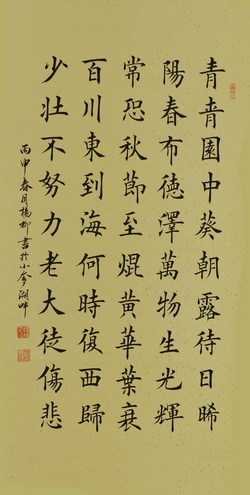 青青園中葵朝露待日晞
陽春布德澤萬物生光輝
常恐秋節至焜黃華葉衰
百川東到海何時復西歸
少壯不努力老大徒傷悲
丙申春月楊柳書於小麥湖畔